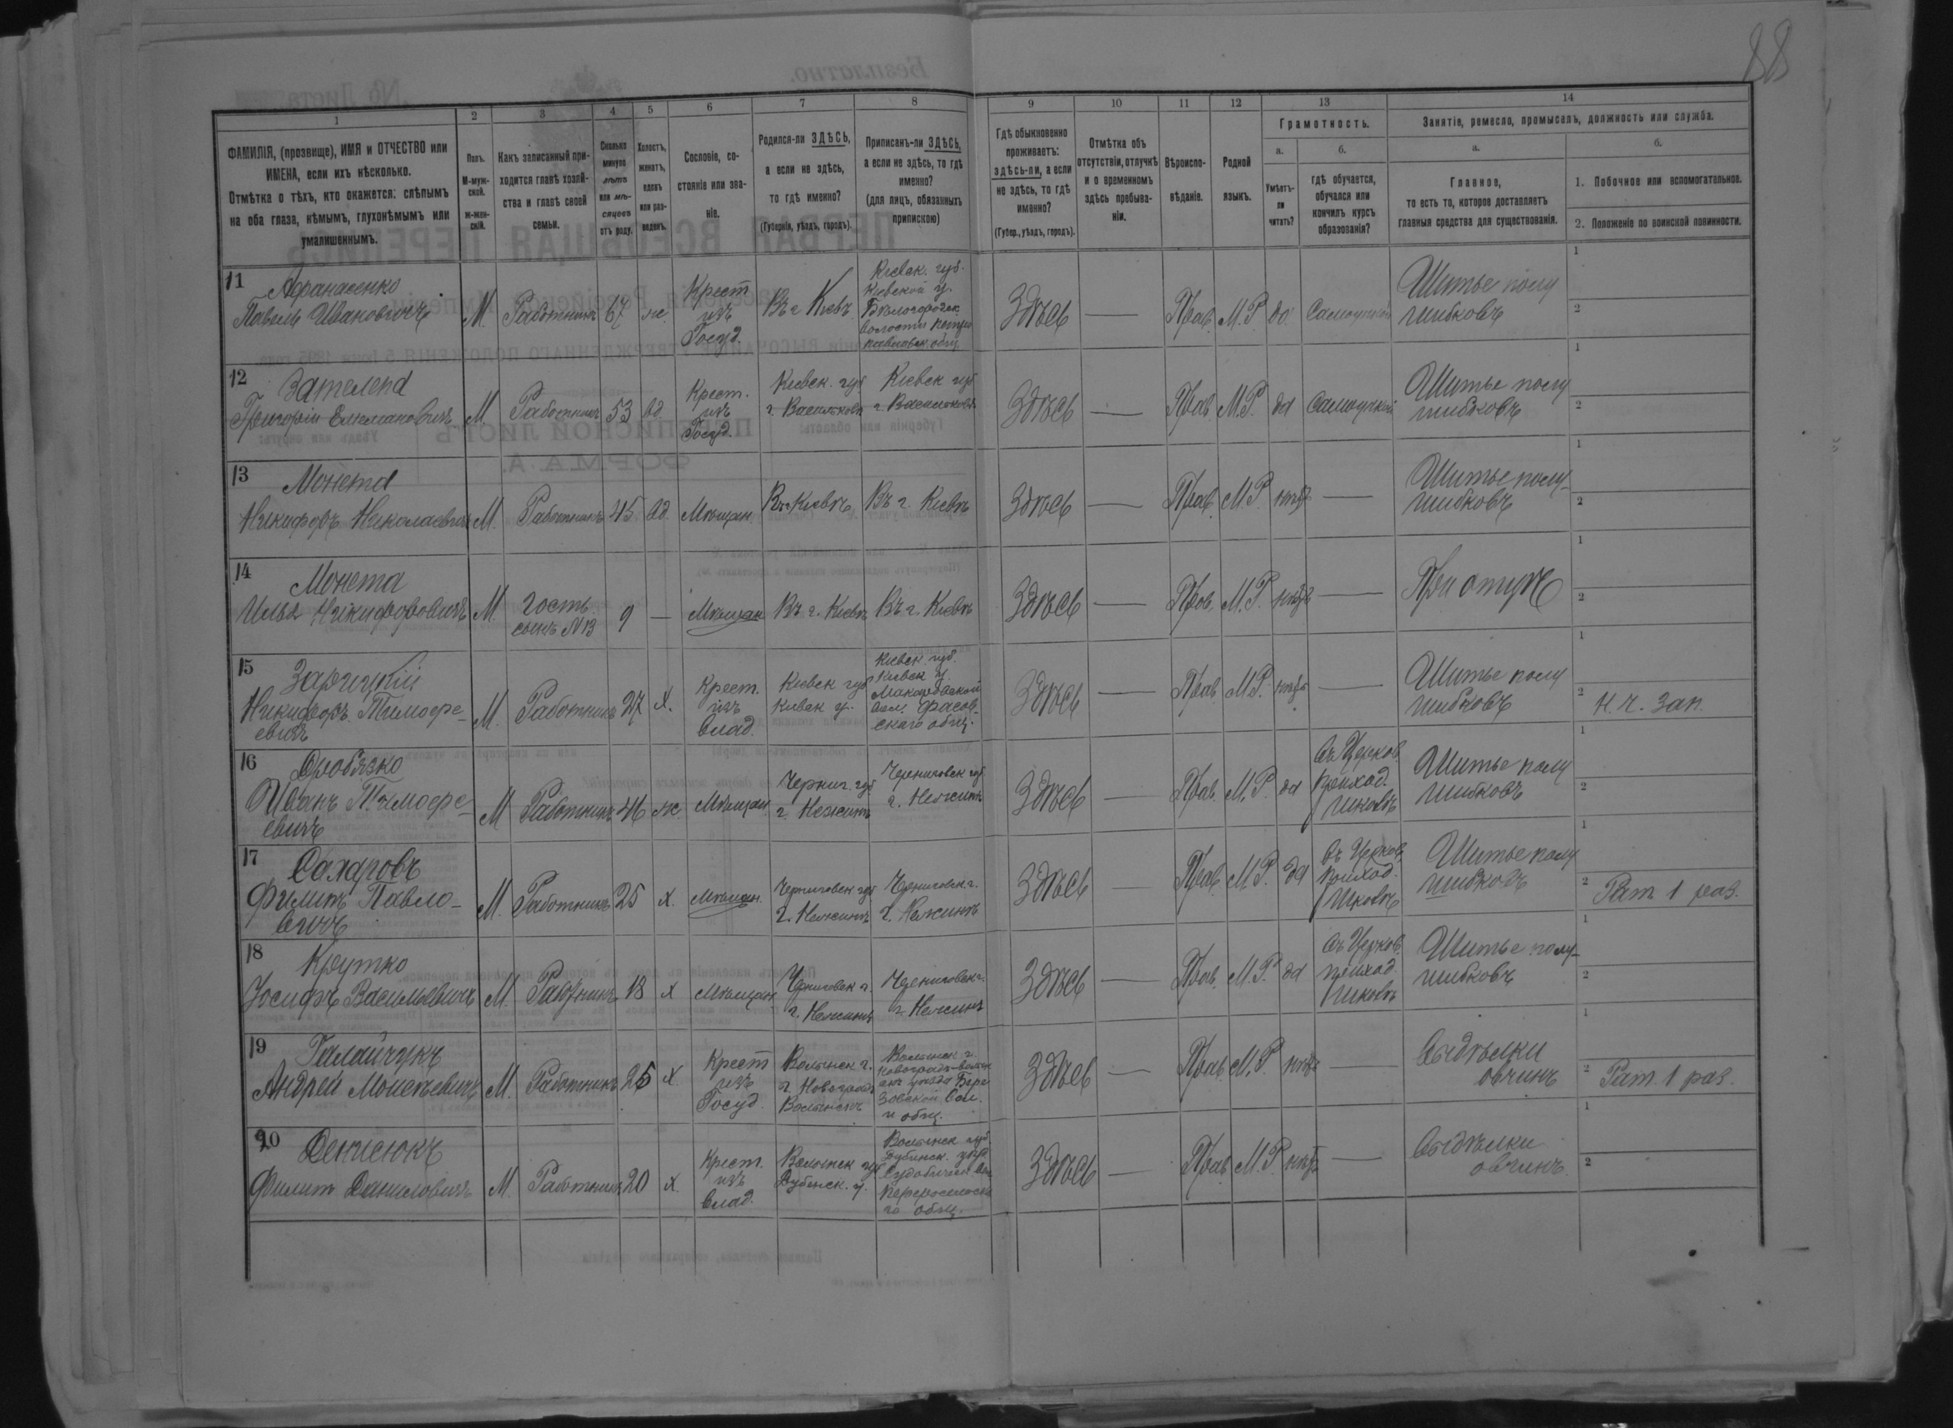 88
1 2 3 4 5 6 7 8 9 10 11 12 13 14
ФАМИЛІЯ, (прозвище), ИМЯ и ОТЧЕСТВО или
ИМЕНА, если ихъ нѣсколько.
Отмѣтка о тѣхъ, кто окажется: слѣпымъ
на оба глаза, нѣмымъ, глухонѣмымъ или
умалишеннымъ.
Полъ.
М-муж-
ской.
ж-жен-
скій.
Какъ записанный при-
ходится главѣ хозяй-
ства и главѣ своей
семьи.
Сколько
минуло
лѣтъ
или мѣ-
сяцевъ
отъ роду.
Холостъ,
женатъ,
вдовъ
или раз-
веденъ.
Сословіе, со-
стояніе или зва-
ніе.
Родился-ли ЗДѢСЬ,
а если не здѣсь,
то гдѣ именно?
(Губернія, уѣздъ, городъ).
Приписанъ-ли ЗДѢСЬ,
а если не здѣсь, то гдѣ
именно?
(для лицъ, обязанныхъ
припискою)
Гдѣ обыкновенно
проживаетъ:
здѣсь-ли, а если
не здѣсь, то гдѣ
именно?
(Губер., уѣздъ, городъ).
Отмѣтка объ
отсутствіи, отлучкѣ
и о временномъ
здѣсь пребыва-
ніи.
Вѣроиспо-
вѣданіе.
Родной
языкъ.
Грамотность.
а.
Умѣетъ-
ли
читать?
б.
гдѣ обучается,
обучался или
кончилъ курсъ
образованія?
Занятіе, ремесло, промыселъ, должность или служба.
а.
Главное,
то есть то, которое доставляетъ
главныя средства для существованія.
б.
1. Побочное или вспомогательное.
2. Положеніе по воинской повинности.
11
Афанасенко
Павелъ Ивановичъ
М. Работникъ 67 ж.
Крест
изъ
Госуд.
Въ г. Кіевѣ
Кіевск. губ.
Кіевской у.
Бѣлогородск.
волости
Здѣсь — Прав. М.Р. да
Шитье полу
шубковъ
1
2
12
Григорій
М. Работникъ 53 вд
Крест.
изъ
Госуд.
Кіевск. губ
г. Васильковъ
Кіевск губ
г. Васильковъ
Здѣсь — Прав. М.Р. да
Шитье полу
шубковъ
1
2
13
Монета
Никифоръ Николаевичъ М. Работникъ 45 вд. Мѣщан. Въ г. Кіевѣ. Въ г. Кіевѣ Здѣсь — Прав. М.Р. нѣтъ —
Шитье полу-
шубковъ
1
2
14
Монета
Илья Никифоровичъ М.
гость
сынъ N13
9 — Мѣщан. Въ г. Кіевѣ Въ г. Кіевѣ Здѣсь — Прав. М.Р. нѣтъ — При отцѣ
1
2
15
Зарицкій
Никифоръ Тимофе-
евичъ
М. Работникъ 27 х.
Крест.
изъ
влад.
Кіевск губ
Кіевск у.
Кіевск. губ.
Кіевск у.
Макаровской
вол. Фасов-
скаго общ.
Здѣсь — Прав. М.Р. нѣтъ —
Шитье полу
шубковъ
1
2 н. ч. зап.
16
Дробязко
Иванъ Тимофе-
евичъ
М Работникъ 46 ж. Мѣщан.
Черниг. губ
г. Нежинъ
Черниговск губ.
г. Нежинъ
Здѣсь — Прав. М.Р. да
Въ Церков
приход.
школѣ
Шитье полу
шубковъ
1
2
17
Сахаровъ
Филипъ Павло-
вичъ
М. Работникъ 25 х. Мѣщан.
Черниговск губ
г. Нежинъ
Черниговск г.
г. Нежинъ
Здѣсь — Прав. М.Р. да
Въ Церков
приход.
школѣ
Шитье полу
шубковъ
1
2 Рат 1 раз.
18
Крутко
Іосифъ Васильевичъ М. Работникъ 18 х Мѣщан
Черниговск г.
г. Нежинъ
Черниговск г.
г. Нежинъ
Здѣсь — Прав. М.Р. да
Въ Церков.
приход.
школѣ
Шитье полу-
шубковъ
1
2
19
Галайчукъ
Андрей Моисеевичъ М. Работникъ 25 х
Крест
изъ
Госуд
Волынск г.
г. Новоградъ
Волынскъ
Волынск г.
Новоградъ-Волын
ск уѣзда Бере
зовской вол.
и общ.
Здѣсь — Прав. М.Р. нѣтъ —
Выдѣлки
овчинъ
1
2 Рат 1 раз.
20
Денисюкъ
Филипъ Даниловичъ М. Работникъ 20 х.
Крест.
изъ
влад.
Волынск губ
Дубенск. у.
Волынск губ.
Дубенск. уѣзд
го общ.
Здѣсь — Прав. М.Р. нѣтъ —
Выдѣлки
овчинъ.
1
2